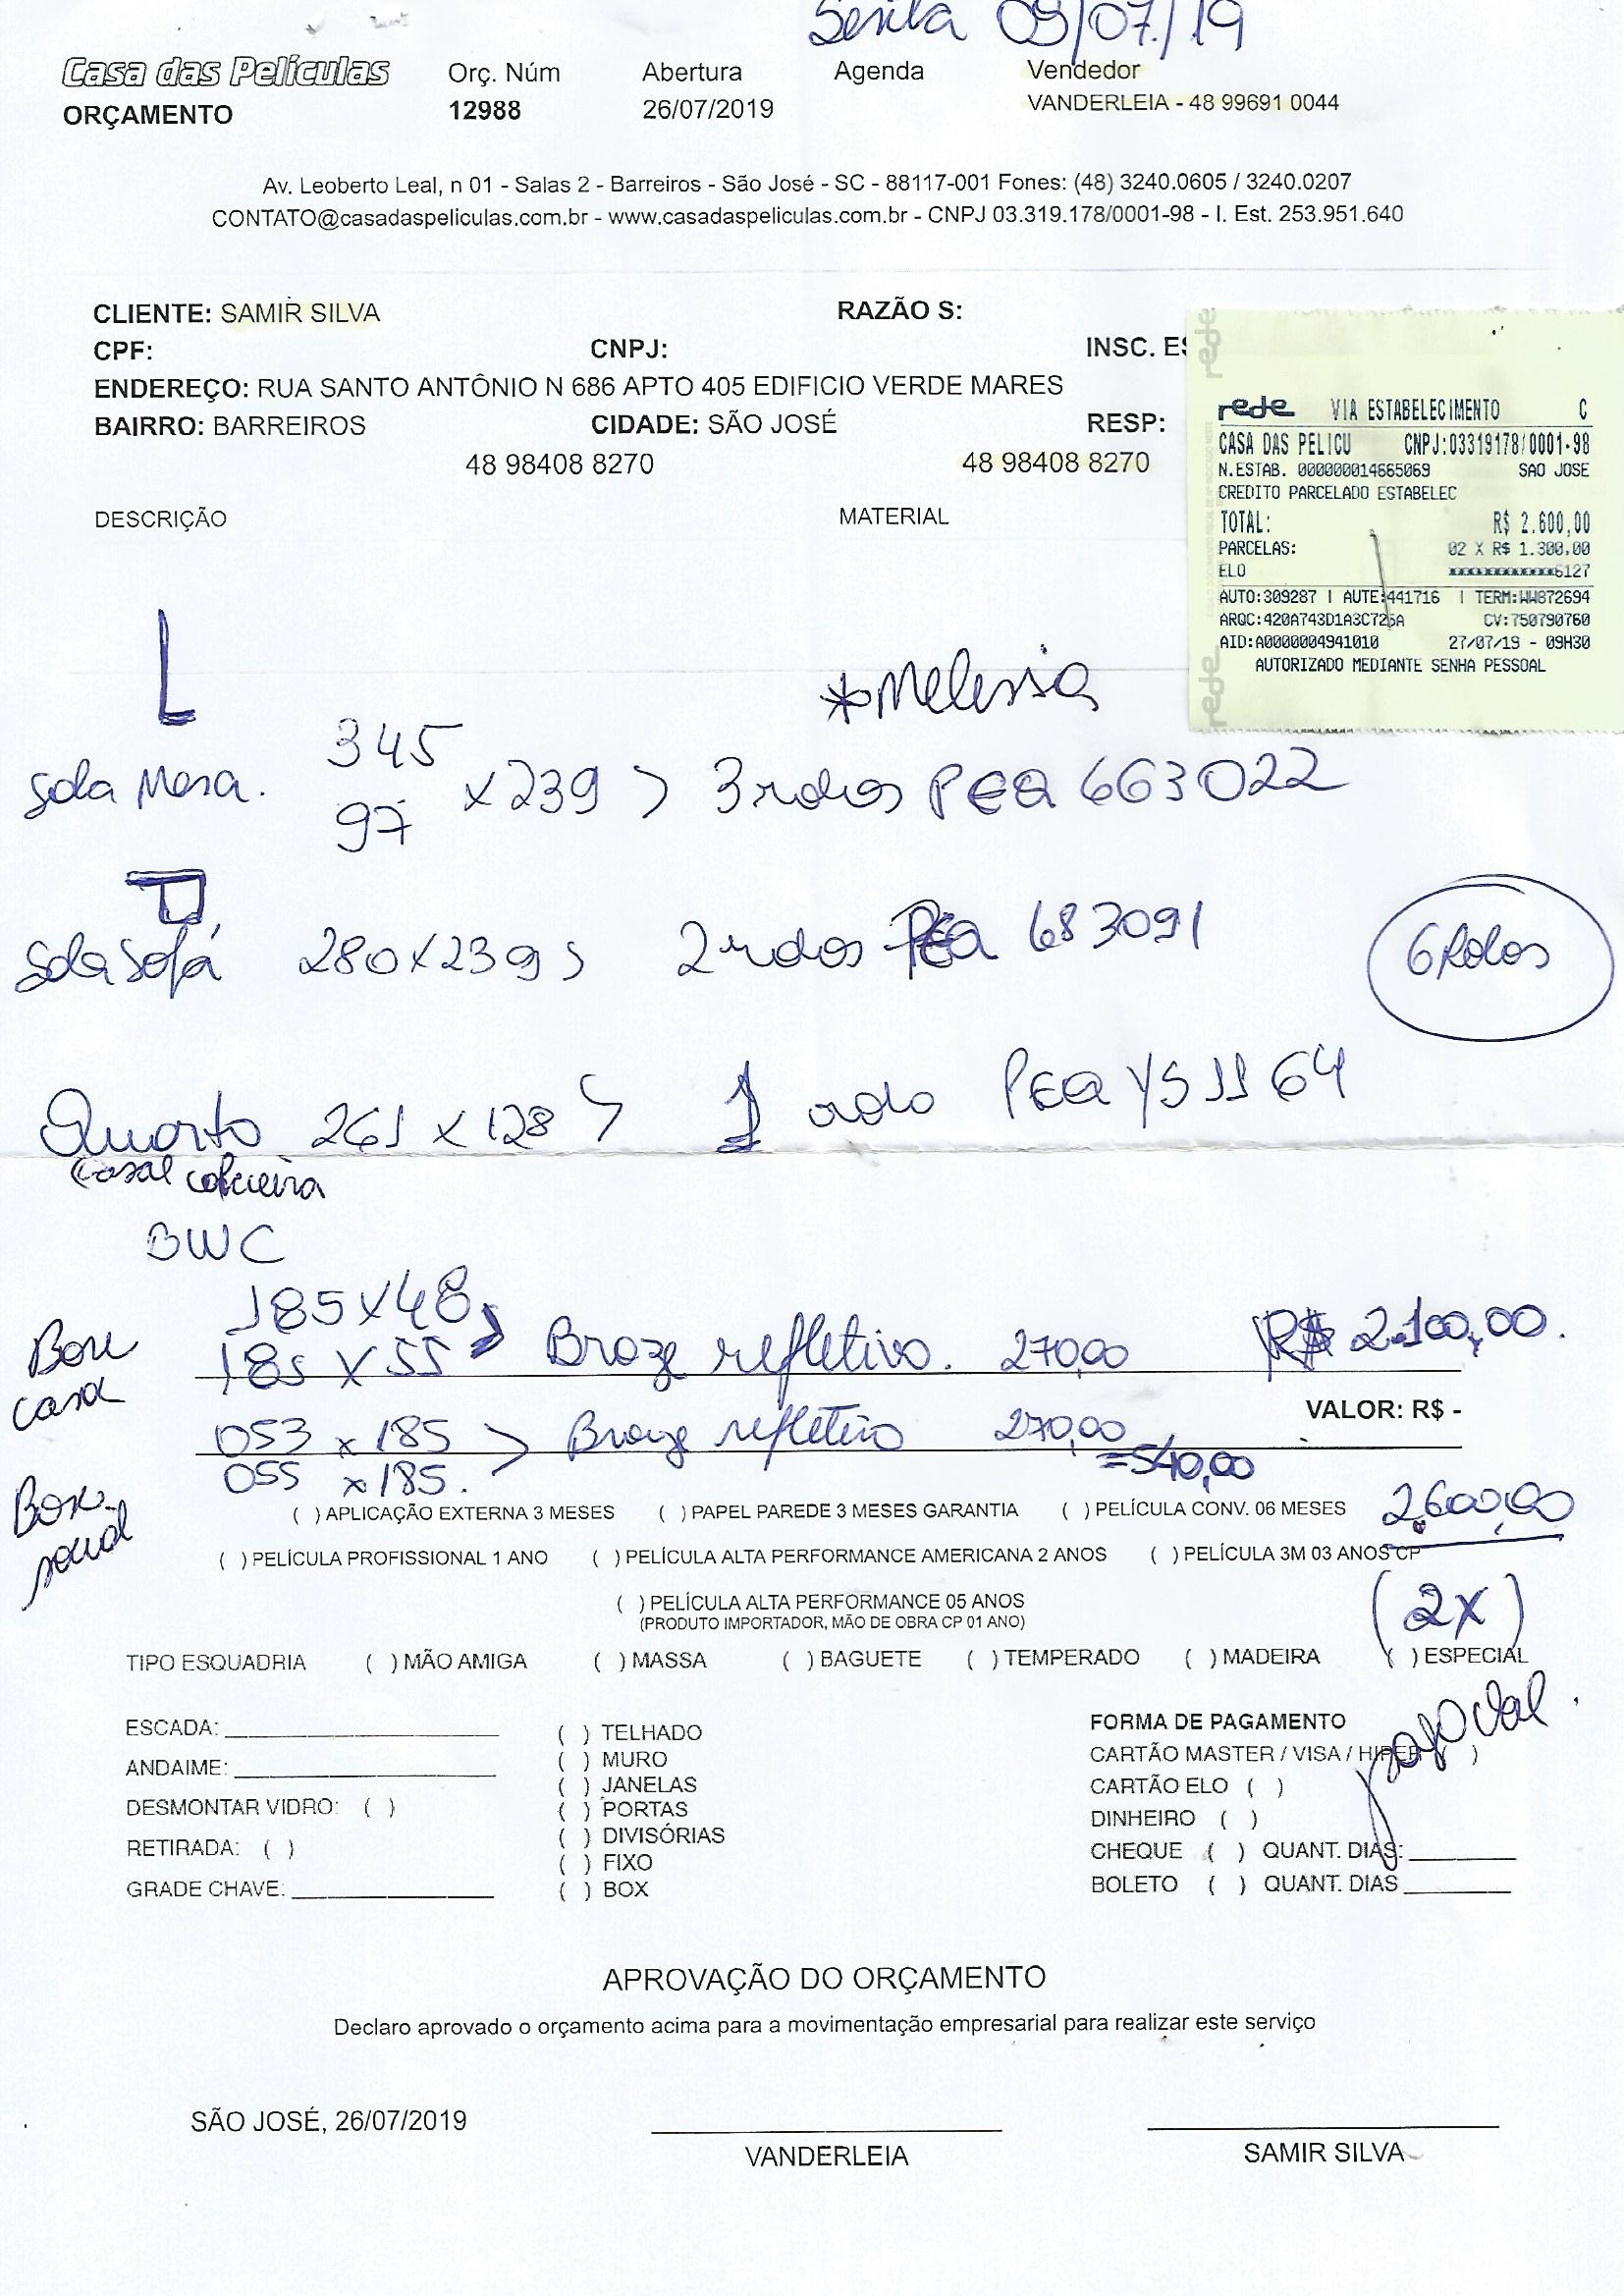 Sexta 09/07/19
Casa das Películas
ORÇAMENTO
Orç. Núm
12988
Abertura
26/07/2019
Agenda
Vendedor
VANDERLEIA - 48 99691 0044
Av. Leoberto Leal, n 01 - Salas 2 - Barreiros - São José - SC - 88117-001 Fones: (48) 3240.0605 / 3240.0207
CONTATO@casadaspeliculas.com.br - www.casadaspeliculas.com.br - CNPJ 03.319.178/0001-98 - I. Est. 253.951.640
CLIENTE: SAMIR SILVA RAZÃO S:
CPF: CNPJ: INSC. ES
ENDEREÇO: RUA SANTO ANTÔNIO N 686 APTO 405 EDIFICIO VERDE MARES
BAIRRO: BARREIROS CIDADE: SÃO JOSÉ RESP:
48 98408 8270 48 98408 8270
DESCRIÇÃO MATERIAL
rede VIA ESTABELECIMENTO C
CASA DAS PELICU CNPJ:03319178/0001-98
N.ESTAB. 000000014665069 SAO JOSE
CREDITO PARCELADO ESTABELEC
TOTAL: R$ 2.600,00
PARCELAS: 02 X R$ 1.300,00
ELO xxxxxxxxxxxx6127
AUTO:309287 | AUTE:441716 | TERM:WW872694
ARQC:420A743D1A3C725A CV:750790760
AID:A0000004941010 27/07/19 - 09H30
AUTORIZADO MEDIANTE SENHA PESSOAL
rede
rede
L
345
Sala Mesa. x 239 > 3 rolos PEA 663022
97
Sala Sofá 280 x 239 > 2 rolos PEA 683091
6 Rolos
Quarto 261 x 128 > 1 rolo PEA YS1164
Casal
BWC
185 x 48
Box casal 185 x 55 > Broze refletivo. 270,00 R$ 2.100,00.
VALOR: R$ -
053 x 185 > Broze refletivo 270,00
Box social 055 x 185. =540,00
( ) APLICAÇÃO EXTERNA 3 MESES ( ) PAPEL PAREDE 3 MESES GARANTIA ( ) PELÍCULA CONV. 06 MESES 2.600,00
( ) PELÍCULA PROFISSIONAL 1 ANO ( ) PELÍCULA ALTA PERFORMANCE AMERICANA 2 ANOS ( ) PELÍCULA 3M 03 ANOS CP
( ) PELÍCULA ALTA PERFORMANCE 05 ANOS
(PRODUTO IMPORTADOR, MÃO DE OBRA CP 01 ANO)
(2x)
TIPO ESQUADRIA ( ) MÃO AMIGA ( ) MASSA ( ) BAGUETE ( ) TEMPERADO ( ) MADEIRA ( ) ESPECIAL
ESCADA:
ANDAIME:
DESMONTAR VIDRO: ( )
RETIRADA: ( )
GRADE CHAVE:
( ) TELHADO
( ) MURO
( ) JANELAS
( ) PORTAS
( ) DIVISÓRIAS
( ) FIXO
( ) BOX
FORMA DE PAGAMENTO
CARTÃO MASTER / VISA / HIPER ( )
CARTÃO ELO ( )
DINHEIRO ( )
CHEQUE ( ) QUANT. DIAS:
BOLETO ( ) QUANT. DIAS
APROVAÇÃO DO ORÇAMENTO
Declaro aprovado o orçamento acima para a movimentação empresarial para realizar este serviço
SÃO JOSÉ, 26/07/2019
VANDERLEIA
SAMIR SILVA